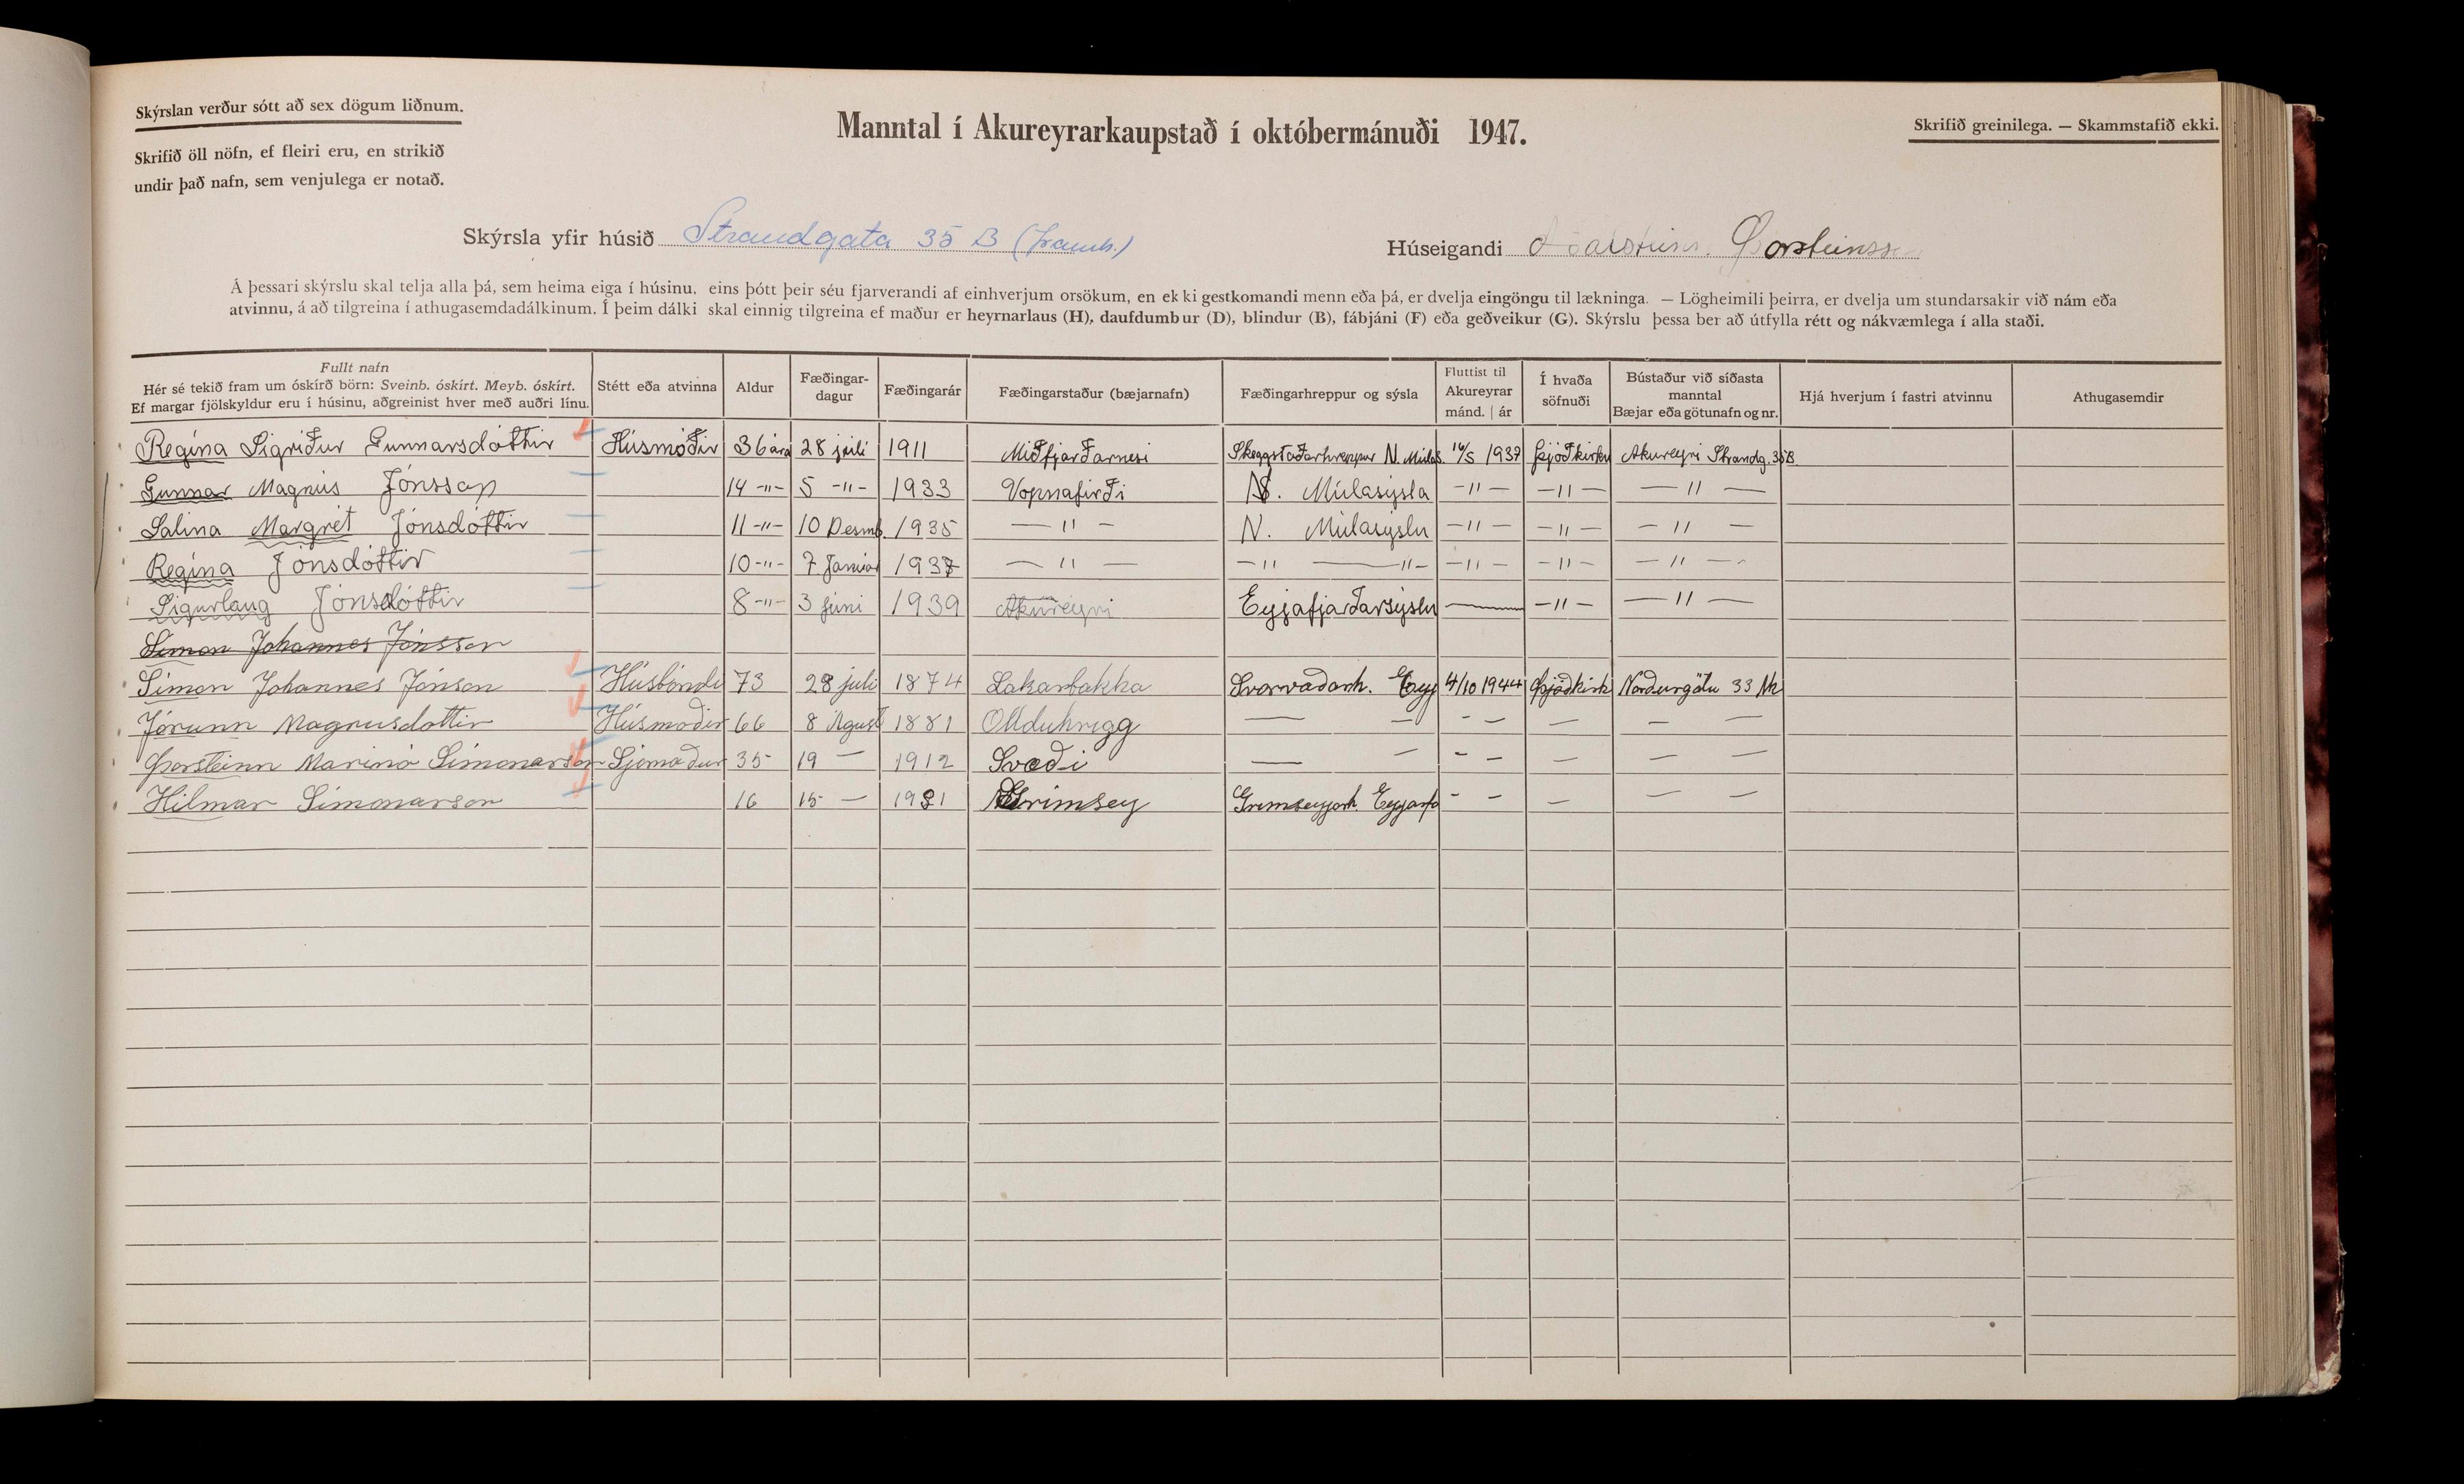 Skýrslan verður sótt að sex dögum liðnum.
Manntal í Akureyrarkaupstað í októbermánuði 1947.
Skrifið greinilega. — Skammstafið ekki.
Skrifið öll nöfn, ef fleiri eru, en strikið
undir það nafn, sem venjulega er notað.
Skýrsla yfir húsið Strandgata 35 B (framh.)
Húseigandi Aðalsteinn Þorsteinsson
Á þessari skýrslu skal telja alla þá, sem heima eiga í húsinu, eins þótt þeir séu fjarverandi af einhverjum orsökum, en ekki gestkomandi menn eða þá, er dvelja eingöngu til lækninga. — Lögheimili þeirra, er dvelja um stundarsakir við nám eða
atvinnu, á að tilgreina í athugasemdadálkinum. Í þeim dálki skal einnig tilgreina ef maður er heyrnarlaus (H), daufdumbur (D), blindur (B), fábjáni (F) eða geðveikur (G). Skýrslu þessa ber að útfylla rétt og nákvæmlega í alla staði.
Fullt nafn
Hér sé tekið fram um óskírð börn: Sveinb. óskírt. Meyb. óskírt.
Ef margar fjölskyldur eru í húsinu, aðgreinist hver með auðri línu.
Stétt eða atvinna
Aldur
Fæðingar-
dagur
Fæðingarár
Fæðingarstaður (bæjarnafn)
Fæðingarhreppur og sýsla
Fluttist til
Akureyrar
mánd. | ár
Í hvaða
söfnuði
Bústaður við síðasta
manntal
Bæjar eða götunafn og nr.
Hjá hverjum í fastri atvinnu
Athugasemdir
Regína Sigríður Gunnarsdóttir Húsmóðir 36 ára 28 júlí 1911 Miðfjarðarnesi Skeggstaðarhreppur N. Múlas. 16/5 1937 Þjóðkirku Akureyri Strandg. 35B.
Gunnar Magnús Jónsson 14 -"- 5 -"- 1933 Vopnafirði N. Múlasýsla -"- -"- -"-
Salina Margrét Jónsdóttir 11 -"- 10 Desmb. 1935 -"- N. Múlasýslu -"- -"- -"-
Regína Jónsdóttir 10 -"- 7 Janúar 1937 -"- -"- -"- -"- -"- -"-
Sigurlaug Jónsdóttir 8 -"- 3 júní 1939 Akureyri Eyjafjarðarsýslu — -"- -"-
Símon Jóhannes Jónsson
Símon Jóhannes Jónson Húsbóndi 73 28 júlí 1874 Lakarbakka Svarvaðarh. Eyj 4/10 1944 Þjóðkirk Norðurgötu 33 Ak
Jórunn Magnusdottir Húsmóðir 66 8 Ágúst 1881 Ölduhrygg — — - - — — —
Þorsteinn Marínó Símonarson Sjómaður 35 19 — 1912 Svæði — — - - — — —
Hilmar Símonarson 16 15 — 1931 Grímsey Grímseyjarh. Eyjarfj - - — — —